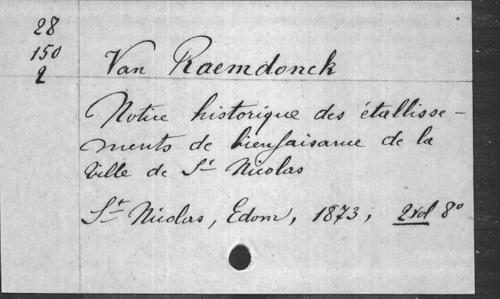 28
150
2
Van Raemdonck
Notice historique des établisse-
ments de bienfaisance de la
Ville de St Nicolas
St Nicolas, Edom, 1873, 2 vol 8°